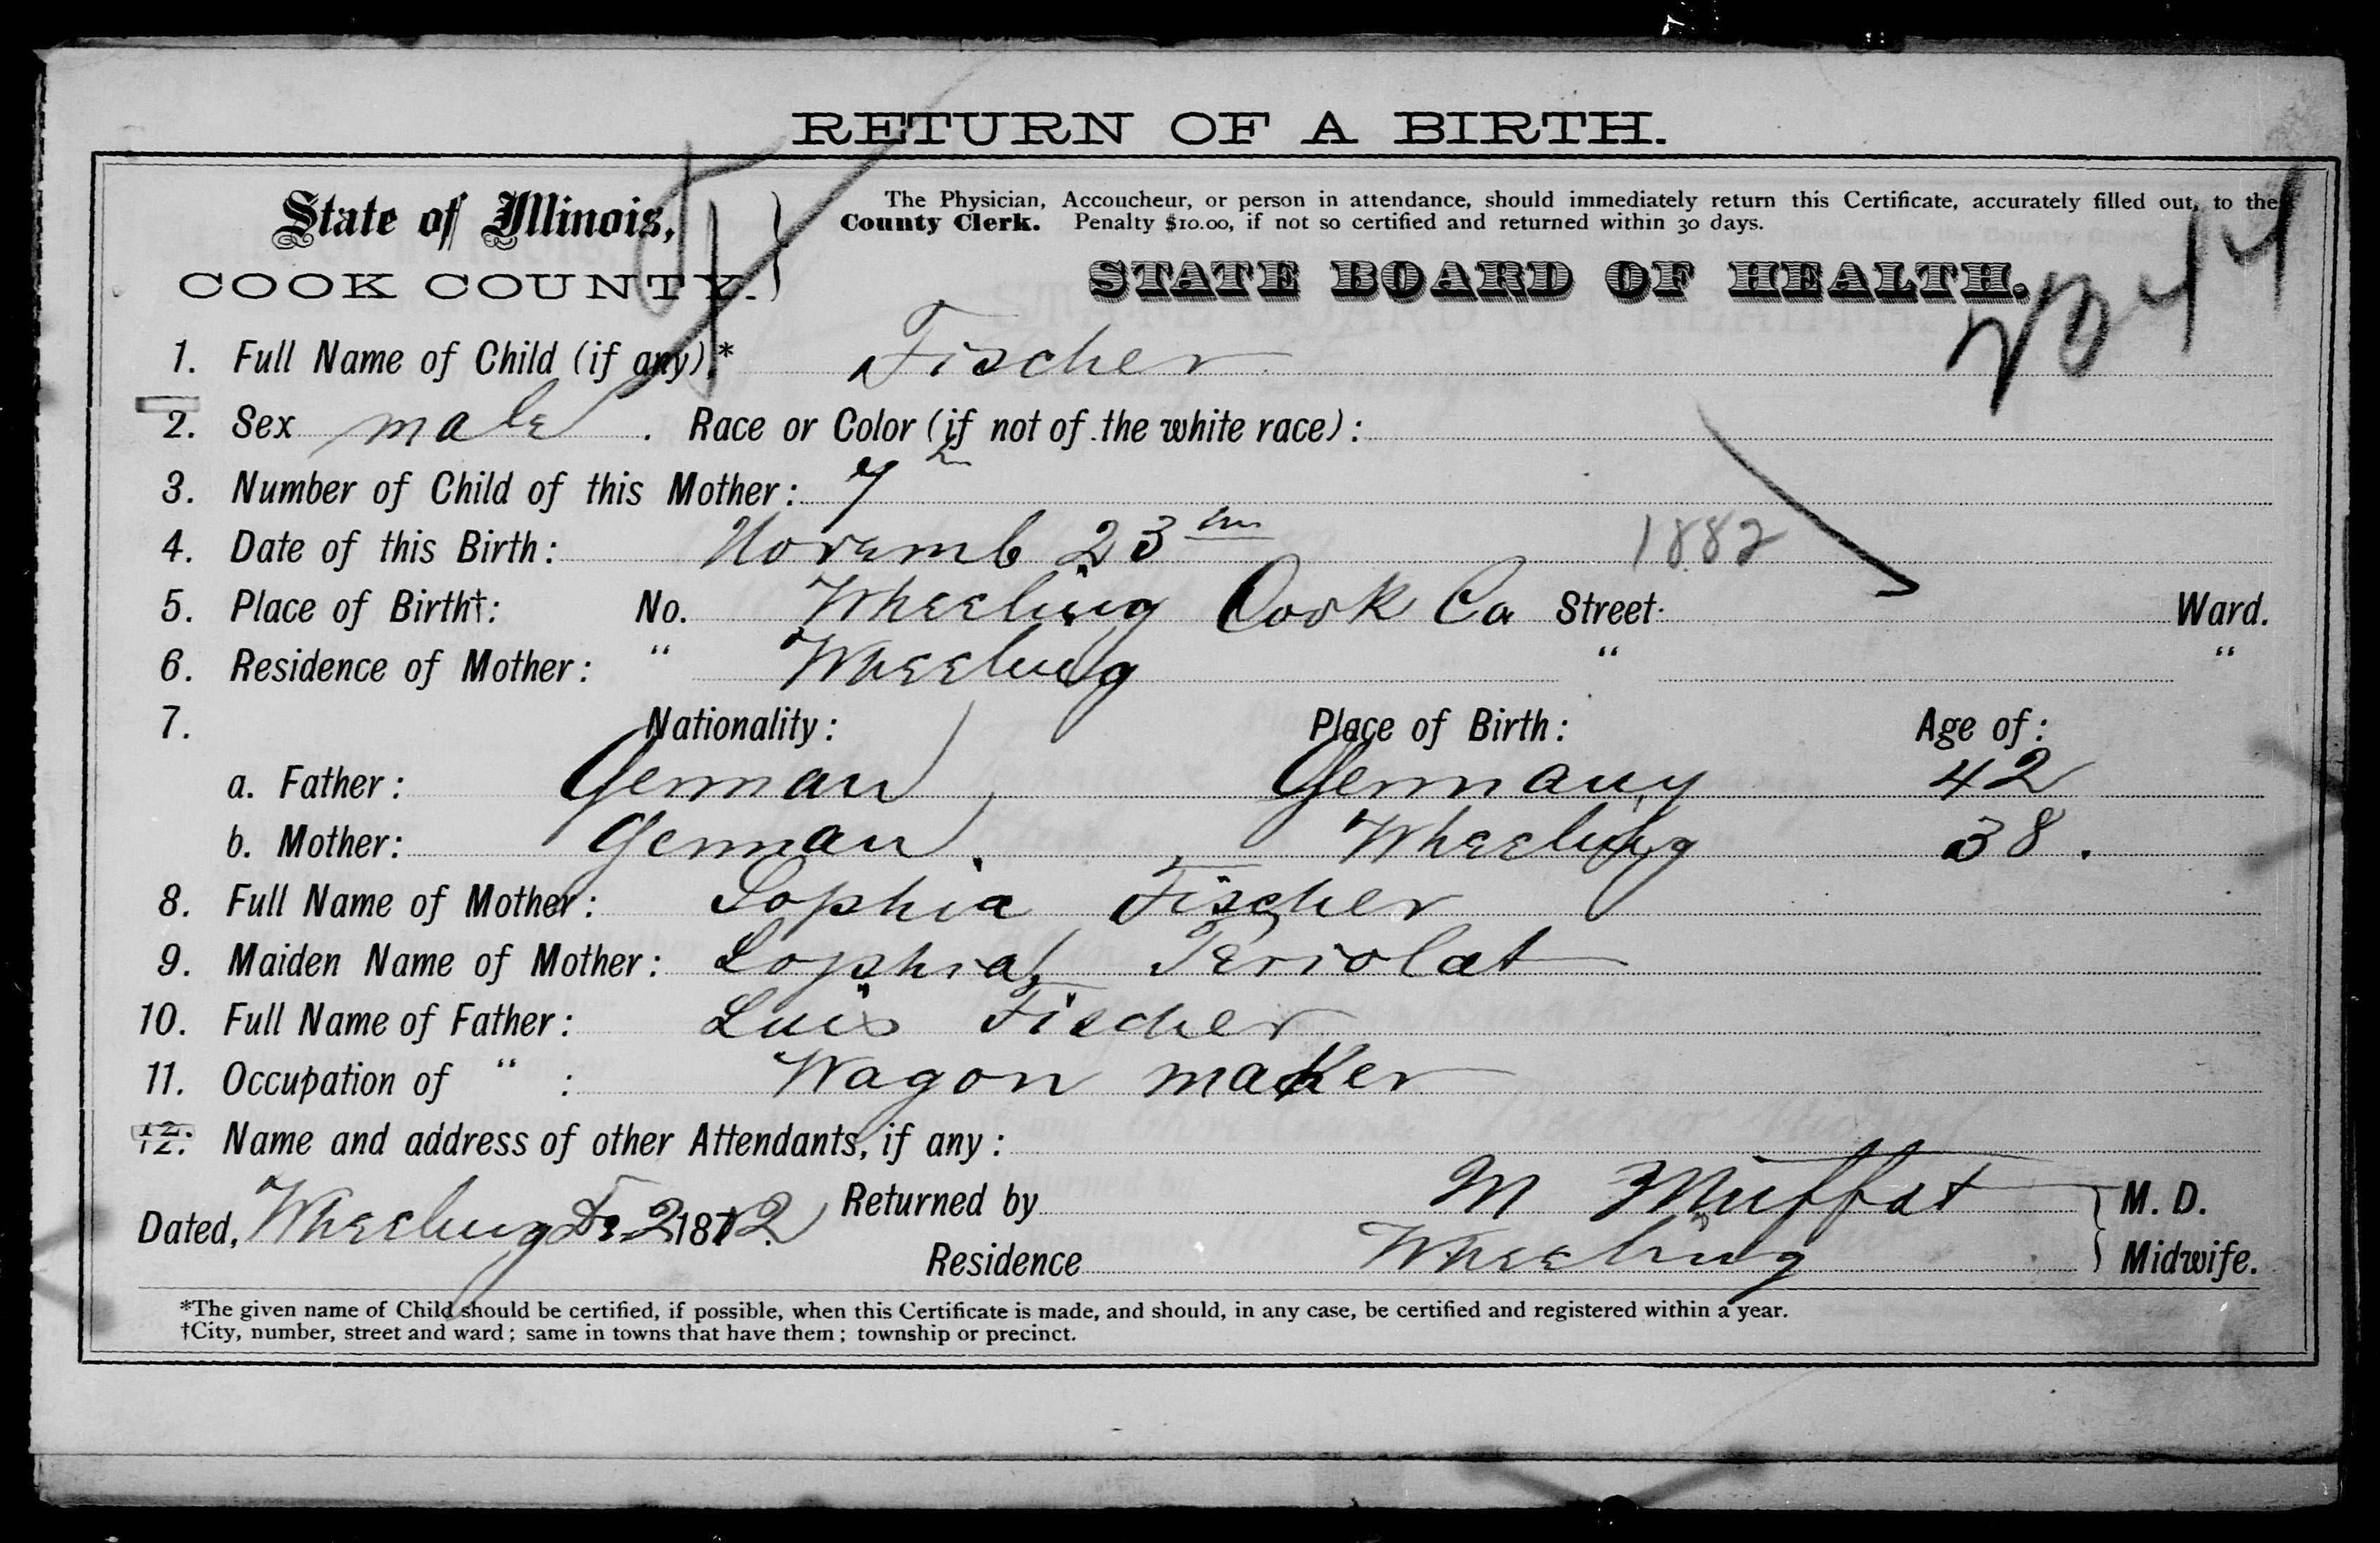 RETURN OF A BIRTH.
State of Illinois,
COOK COUNTY.
The Physician, Accoucheur, or person in attendance, should immediately return this Certificate, accurately filled out, to the
County Clerk. Penalty $10.00, if not so certified and returned within 30 days.
STATE BOARD OF HEALTH.
1. Full Name of Child (if any).* Fischer
2. Sex male. Race or Color (if not of the white race):
3. Number of Child of this Mother: 7
4. Date of this Birth: Novemb 23 1882
5. Place of Birth†: No. Wheeling Cook Co Street Ward.
6. Residence of Mother: " Wheeling " "
7. Nationality: Place of Birth: Age of:
a. Father: German Germany 42
b. Mother: German. Wheeling 38.
8. Full Name of Mother: Sophia Fischer
9. Maiden Name of Mother: Sophia Periolat
10. Full Name of Father: Luis Fischer
11. Occupation of " : Wagon maker
12. Name and address of other Attendants, if any:
Dated, Wheeling De 2 1882 Returned by M Muffat M. D.
Residence Wheeling Midwife.
*The given name of Child should be certified, if possible, when this Certificate is made, and should, in any case, be certified and registered within a year.
†City, number, street and ward; same in towns that have them; township or precinct.